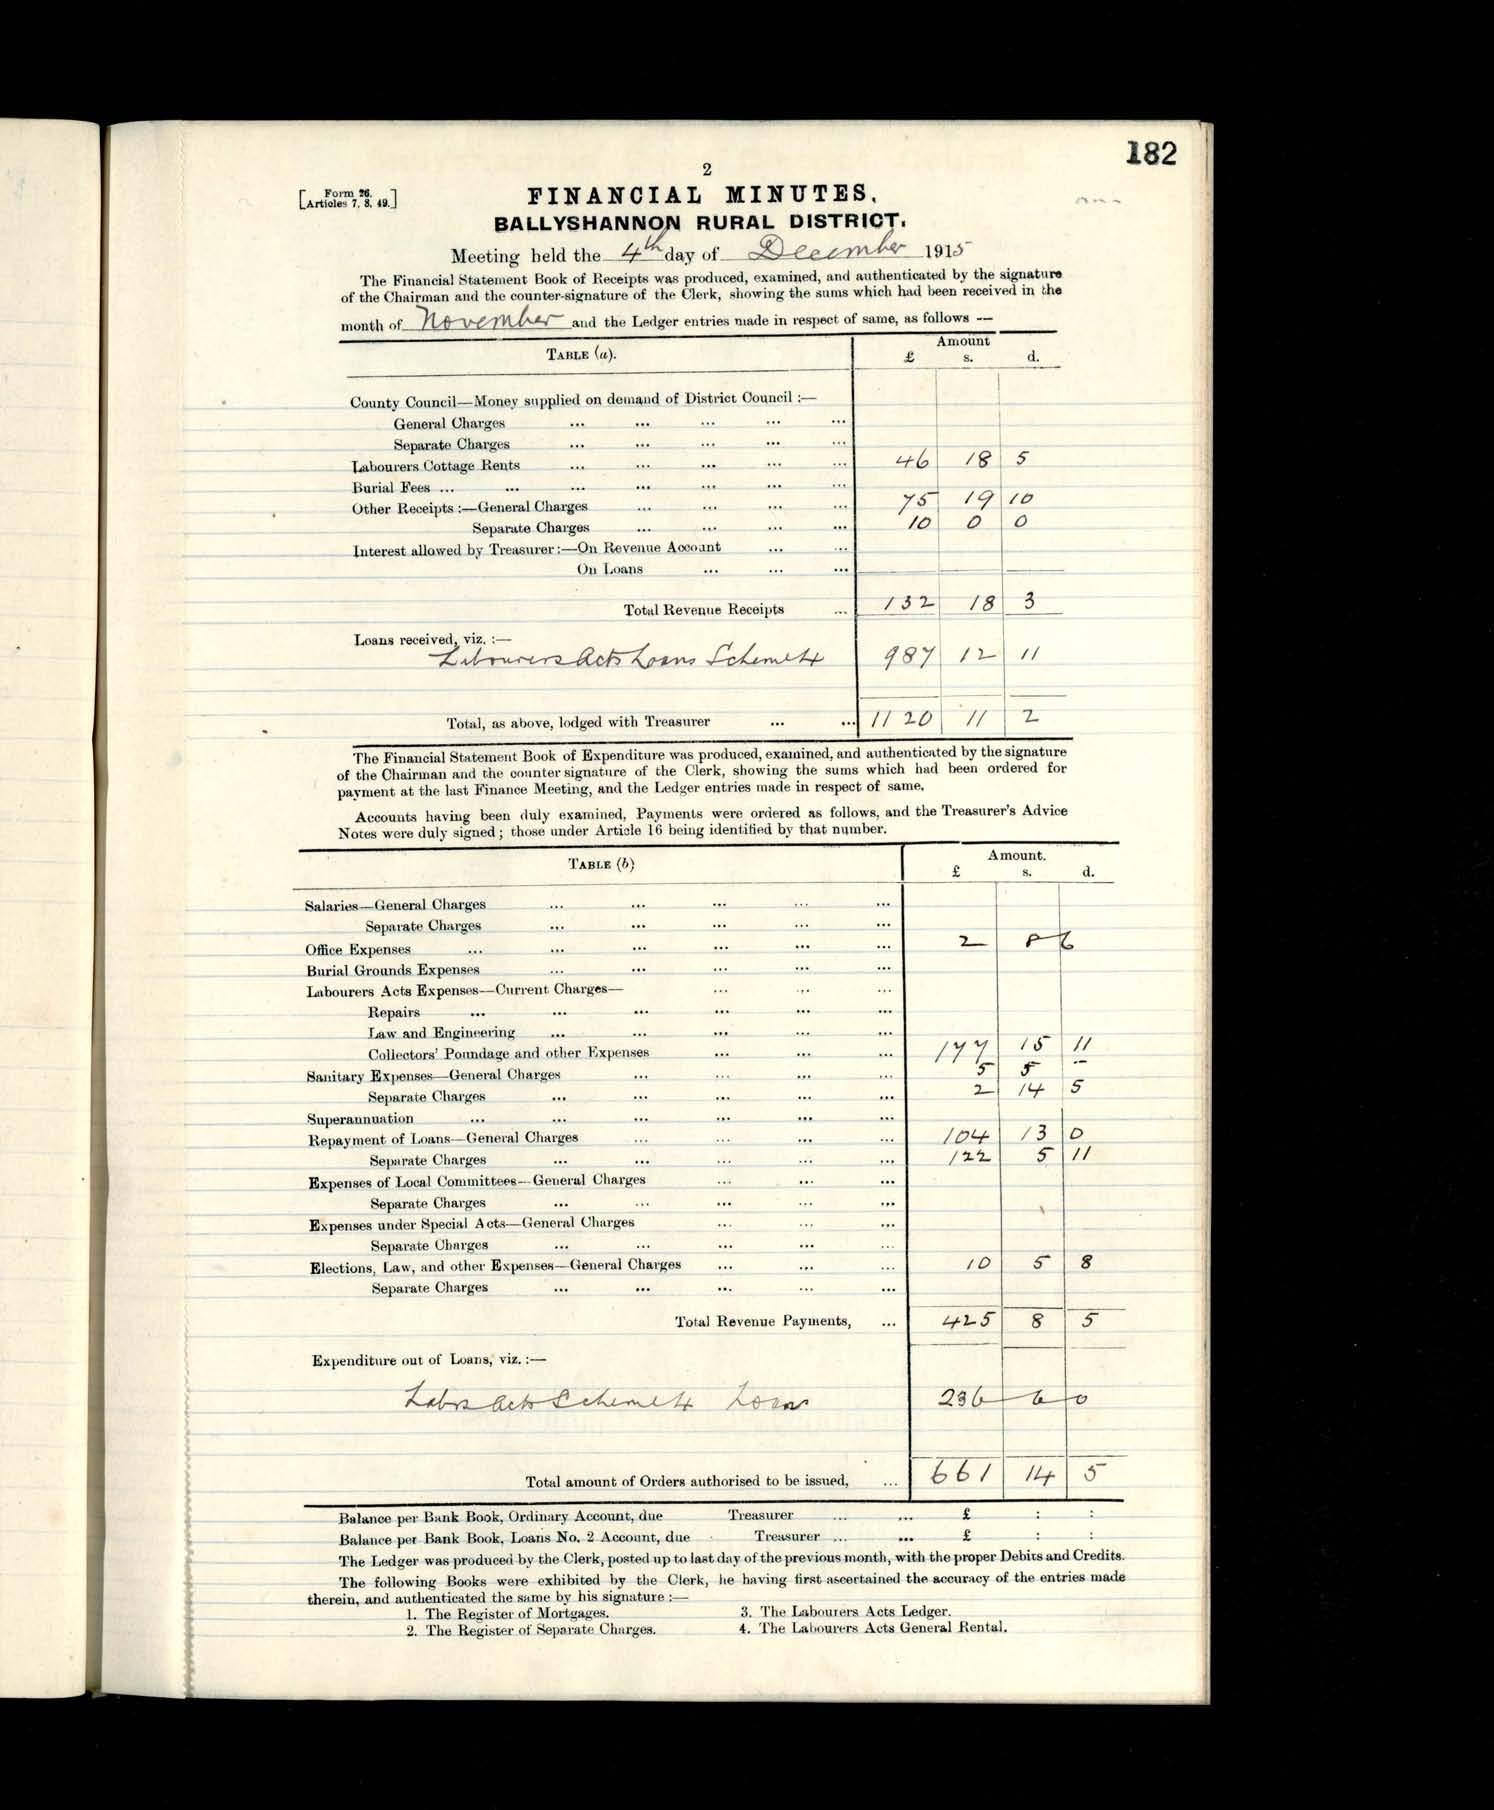 182
2
[Form 26. Articles 7, 8, 49.]
FINANCIAL MINUTES.
BALLYSHANNON RURAL DISTRICT.
Meeting held the 4th day of December 1915
The Financial Statement Book of Receipts was produced, examined, and authenticated by the signature
of the Chairman and the counter-signature of the Clerk, showing the sums which had been received in the
month of November and the Ledger entries made in respect of same, as follows —
TABLE (a). Amount
£ s. d.
County Council—Money supplied on demand of District Council :—
General Charges ... ... ... ... ...
Separate Charges ... ... ... ... ...
Labourers Cottage Rents ... ... ... ... ... 46 18 5
Burial Fees ... ... ... ... ... ... ...
Other Receipts :—General Charges ... ... ... ... 75 19 10
Separate Charges ... ... ... ... 10 0 0
Interest allowed by Treasurer :—On Revenue Account ... ...
On Loans ... ... ...
Total Revenue Receipts ... 132 18 3
Loans received, viz. :—
Labourers Acts Loans Scheme 4 987 12 11
Total, as above, lodged with Treasurer ... ... 1120 11 2
The Financial Statement Book of Expenditure was produced, examined, and authenticated by the signature
of the Chairman and the counter signature of the Clerk, showing the sums which had been ordered for
payment at the last Finance Meeting, and the Ledger entries made in respect of same.
Accounts having been duly examined, Payments were ordered as follows, and the Treasurer's Advice
Notes were duly signed; those under Article 16 being identified by that number.
TABLE (b) Amount.
£ s. d.
Salaries—General Charges ... ... ... ... ...
Separate Charges ... ... ... ... ...
Office Expenses ... ... ... ... ... ... 2 8 6
Burial Grounds Expenses ... ... ... ... ...
Labourers Acts Expenses—Current Charges— ... ... ...
Repairs ... ... ... ... ... ...
Law and Engineering ... ... ... ... ...
Collectors' Poundage and other Expenses ... ... ... 177 15 11
Sanitary Expenses—General Charges ... ... ... ... 5 5 —
Separate Charges ... ... ... ... ... 2 14 5
Superannuation ... ... ... ... ... ...
Repayment of Loans—General Charges ... ... ... ... 104 13 0
Separate Charges ... ... ... ... ... 122 5 11
Expenses of Local Committees—General Charges ... ... ...
Separate Charges ... ... ... ... ...
Expenses under Special Acts—General Charges ... ... ...
Separate Charges ... ... ... ... ...
Elections, Law, and other Expenses—General Charges ... ... ... 10 5 8
Separate Charges ... ... ... ... ...
Total Revenue Payments, ... 425 8 5
Expenditure out of Loans, viz. :—
Labrs Acts Scheme 4 Loan 236 6 0
Total amount of Orders authorised to be issued, ... 661 14 5
Balance per Bank Book, Ordinary Account, due Treasurer ... ... £ : :
Balance per Bank Book, Loans No. 2 Account, due Treasurer ... ... £ : :
The Ledger was produced by the Clerk, posted up to last day of the previous month, with the proper Debits and Credits.
The following Books were exhibited by the Clerk, he having first ascertained the accuracy of the entries made
therein, and authenticated the same by his signature :—
1. The Register of Mortgages. 3. The Labourers Acts Ledger.
2. The Register of Separate Charges. 4. The Labourers Acts General Rental.